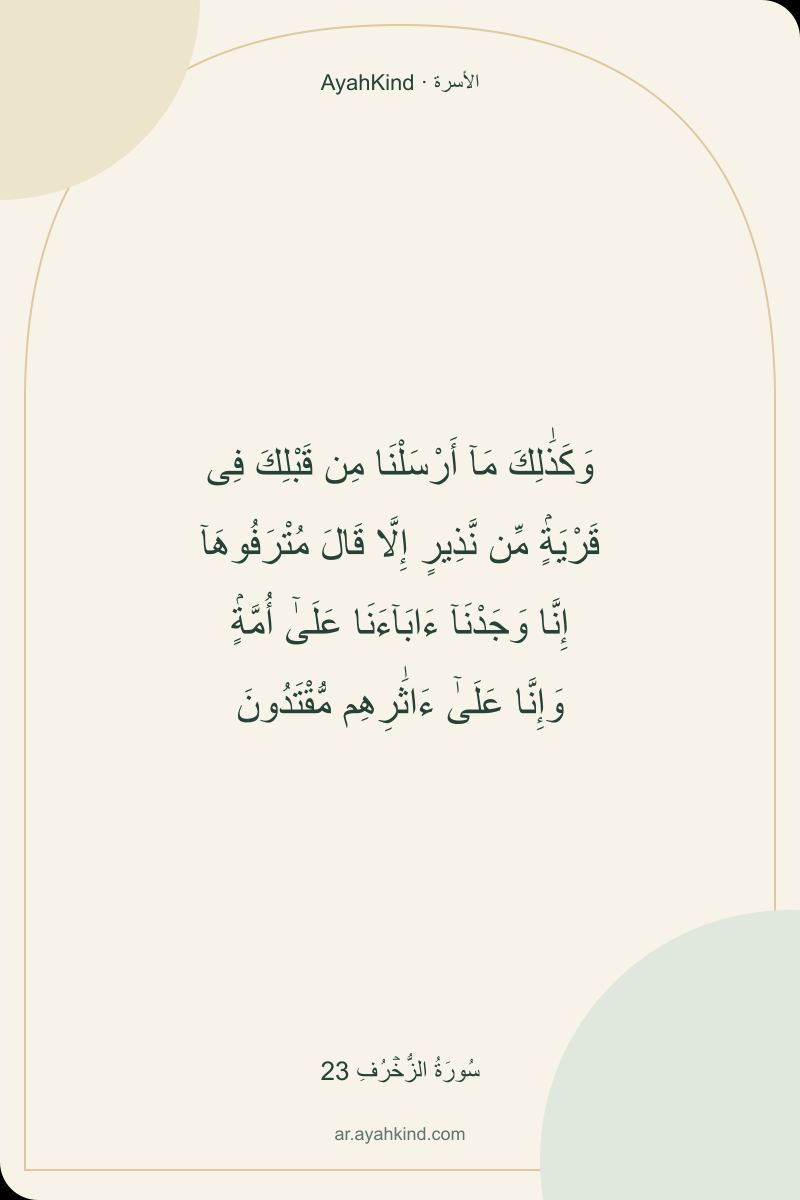 AyahKind · الأسرة
وَكَذَٰلِكَ مَآ أَرْسَلْنَا مِن قَبْلِكَ فِى
قَرْيَةٍۢ مِّن نَّذِيرٍ إِلَّا قَالَ مُتْرَفُوهَآ
إِنَّا وَجَدْنَآ ءَابَآءَنَا عَلَىٰٓ أُمَّةٍۢ
وَإِنَّا عَلَىٰٓ ءَاثَٰرِهِم مُّقْتَدُونَ
سُورَةُ الزُّخْرُفِ 23
ar.ayahkind.com